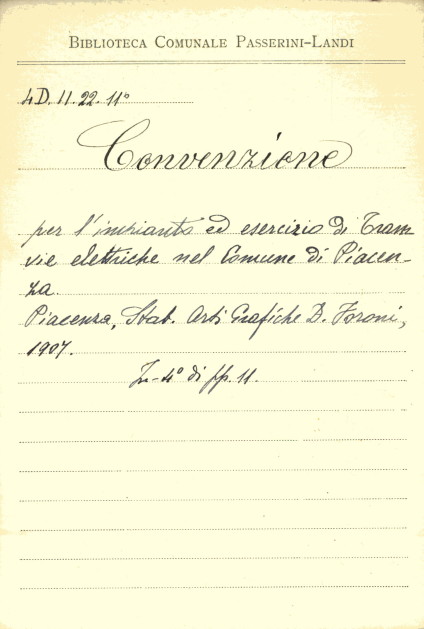 BIBLIOTECA COMUNALE PASSERINI-LANDI
4D. 11. 22. 11°
Convenzione
per l'impianto ed esercizio di Tram
vie elettriche nel Comune di Piacen-
za.
Piacenza, Stab. Arti Grafiche D. Foroni,
1907.
In-4° di pp. 11.